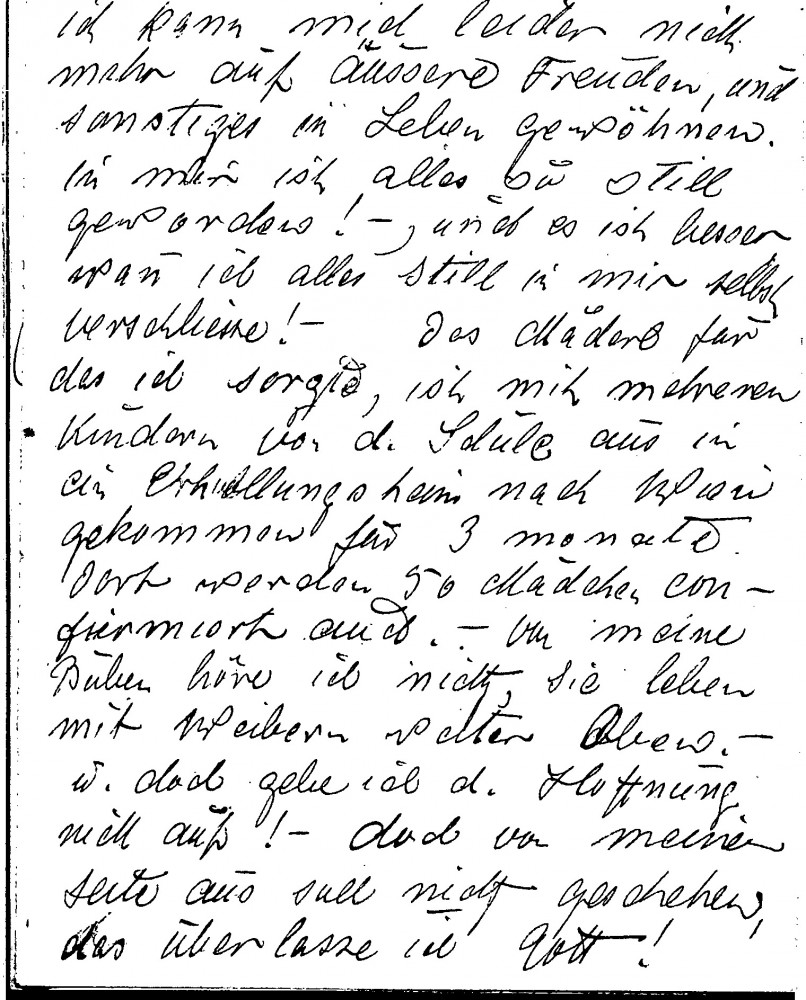 ich kann mich leider nicht
mehr auf äussere Freuden, und
sonstiges in Leben gewöhnen.
in mir ist alles so still
geworden! –, und es ist besser
wan ich alles still in mir selbst
verschliesse! – Das Mäderl für
das ich sorgte, ist mit mehreren
Kindern von d. Schule aus in
ein Erhollungsheim nach Wien
gekommen für 3 monate.
Dort werden 50 Mädchen con-
fiermiert auch. – Von meine
Buben höre ich nicht, sie leben
mit Weibern
u. doch gebe ich d. Hoffnung
nicht auf! – doch von meiner
seite aus soll nicht geschehen,
das überlasse ich Gott!